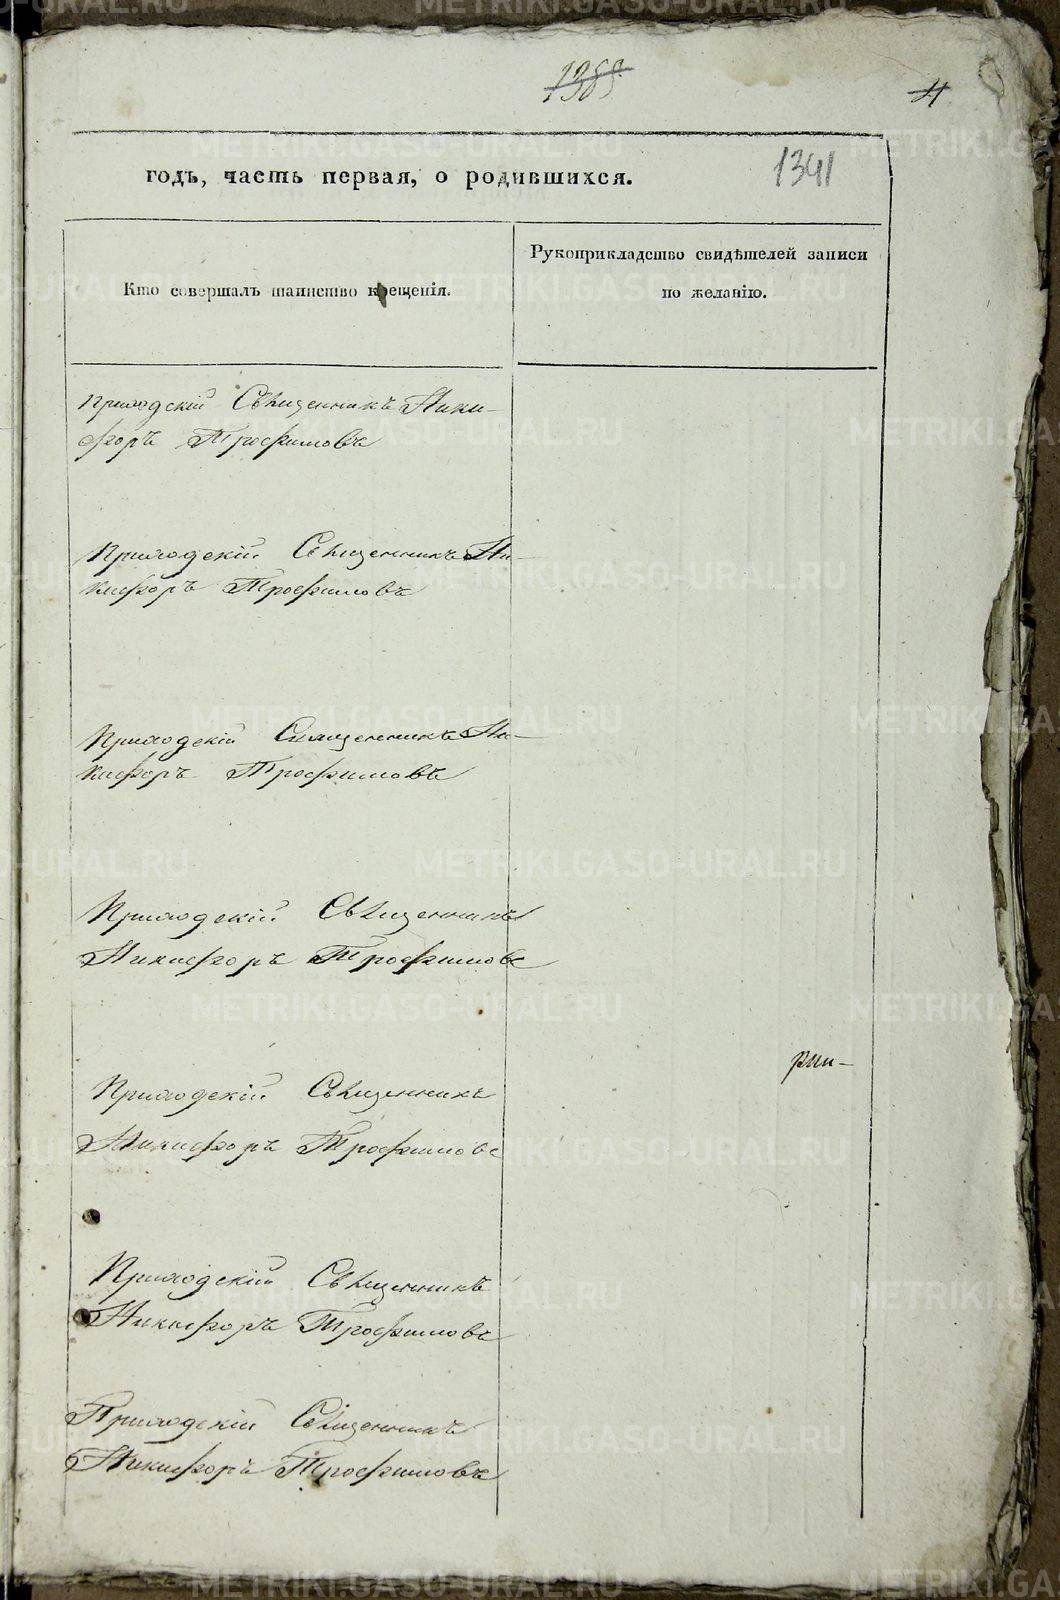 1341
годъ, часть первая, о родившихся.
Кто совершалъ таинство крещенія.
Рукоприкладство свидѣтелей записи
по желанію.
Приходскій Священникъ Ники-
форъ Трофимовъ
Приходскій Священникъ Ни-
кифоръ Трофимовъ
Приходскій Священникъ Ни-
кифоръ Трофимовъ
Приходскій Священникъ
Никифоръ Трофимовъ
Приходскій Священникъ
Никифоръ Трофимовъ
Приходскій Священникъ
Никифоръ Трофимовъ
Приходскій Священникъ
Никифоръ Трофимовъ
METRIKI.GASO-URAL.RU